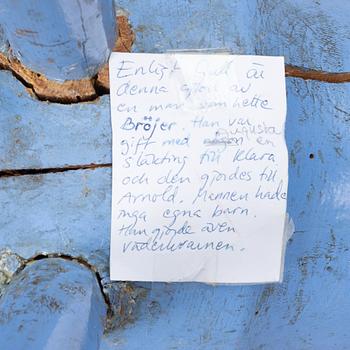 Enligt Gull är
denna gjord av
en man som hette
Bröjer. Han var
gift med Augusta en
släkting till Klara
och den gjordes till
Arnold. Mennen hade
inga egna barn.
Han gjorde även
väderkvarnen.